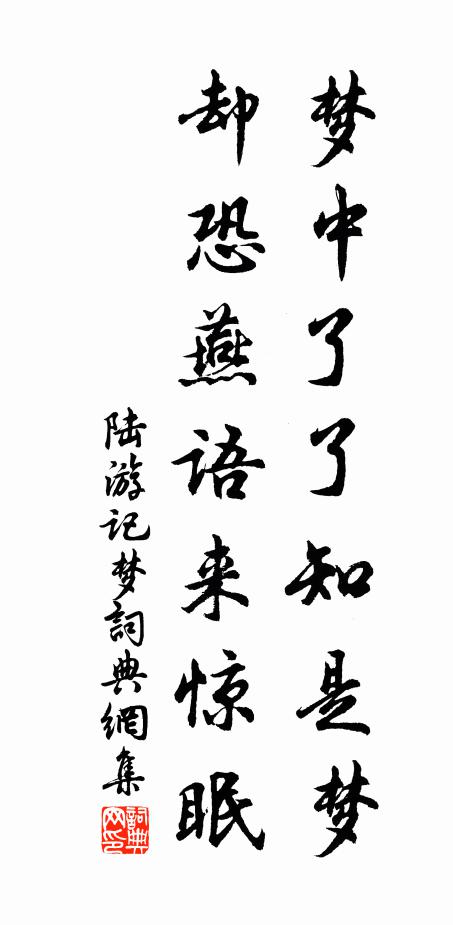 梦中了了知是梦
却恐燕语来惊眠
陆游记梦詞典網集
詞典网印